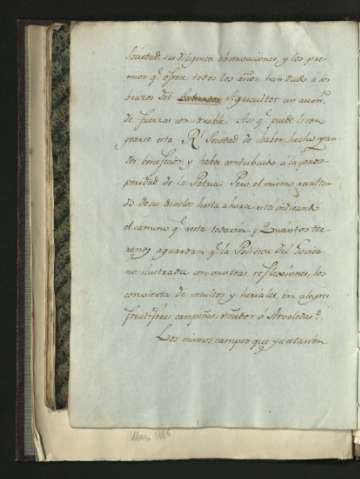 Sociedad, sus diligentes observaciones, y los pre-
mios q.e ofrece todos los años han dado a los
brazos del Labrador Agricultor un aum.to
de fuerzas considerable. Así q.e puede lison-
gearse esta R.l Sociedad de haber hecho gran-
des beneficios, y haber contribuido a la pros-
peridad de la Patria. Pero el mismo resulta-
do de sus desvelos hasta ahora está indicando
el camino q.e resta todavía. y Quantos ter-
renos aguardan q.e la Politica del Gobier-
no ilustrada con nuestras reflexiones, los
convierta de incultos y heriales, en alegres
fructiferas campiñas,
Los mismos campos que ya estaban